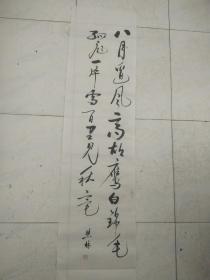 八月邊風高胡鷹白錦毛
孤飛一片雪百里見秋毫